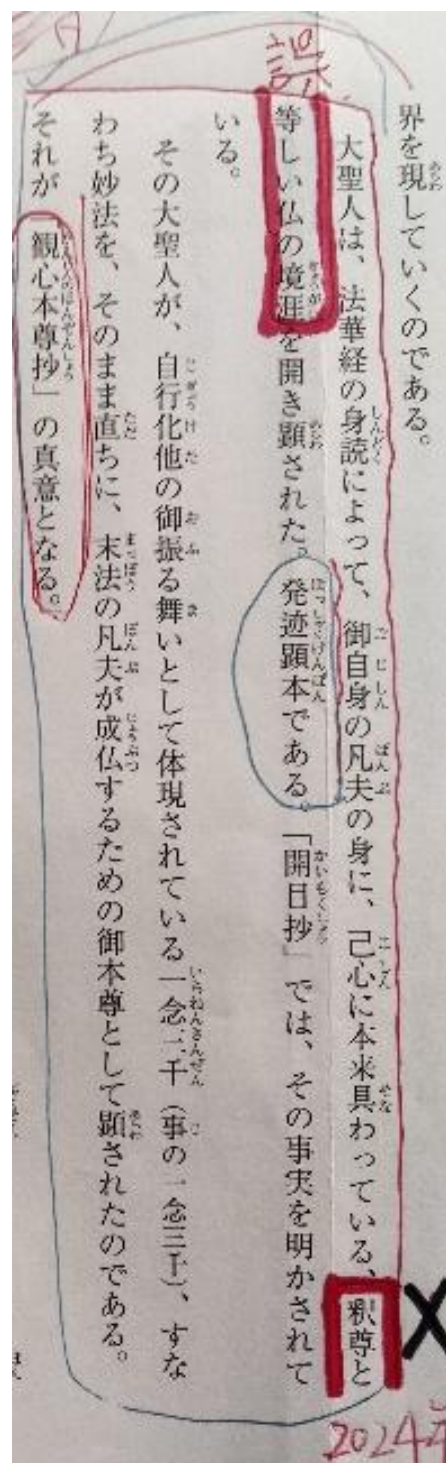 界を現していくのである。
大聖人は、法華経の身読によって、御自身の凡夫の身に、己心に本来具わっている、釈尊と
等しい仏の境涯を開き顕された。発迹顕本である。「開目抄」では、その事実を明かされて
いる。
その大聖人が、自行化他の御振る舞いとして体現されている一念三千（事の一念三千）、すな
わち妙法を、そのまま直ちに、末法の凡夫が成仏するための御本尊として顕されたのである。
それが「観心本尊抄」の真意となる。
誤
X
2024年